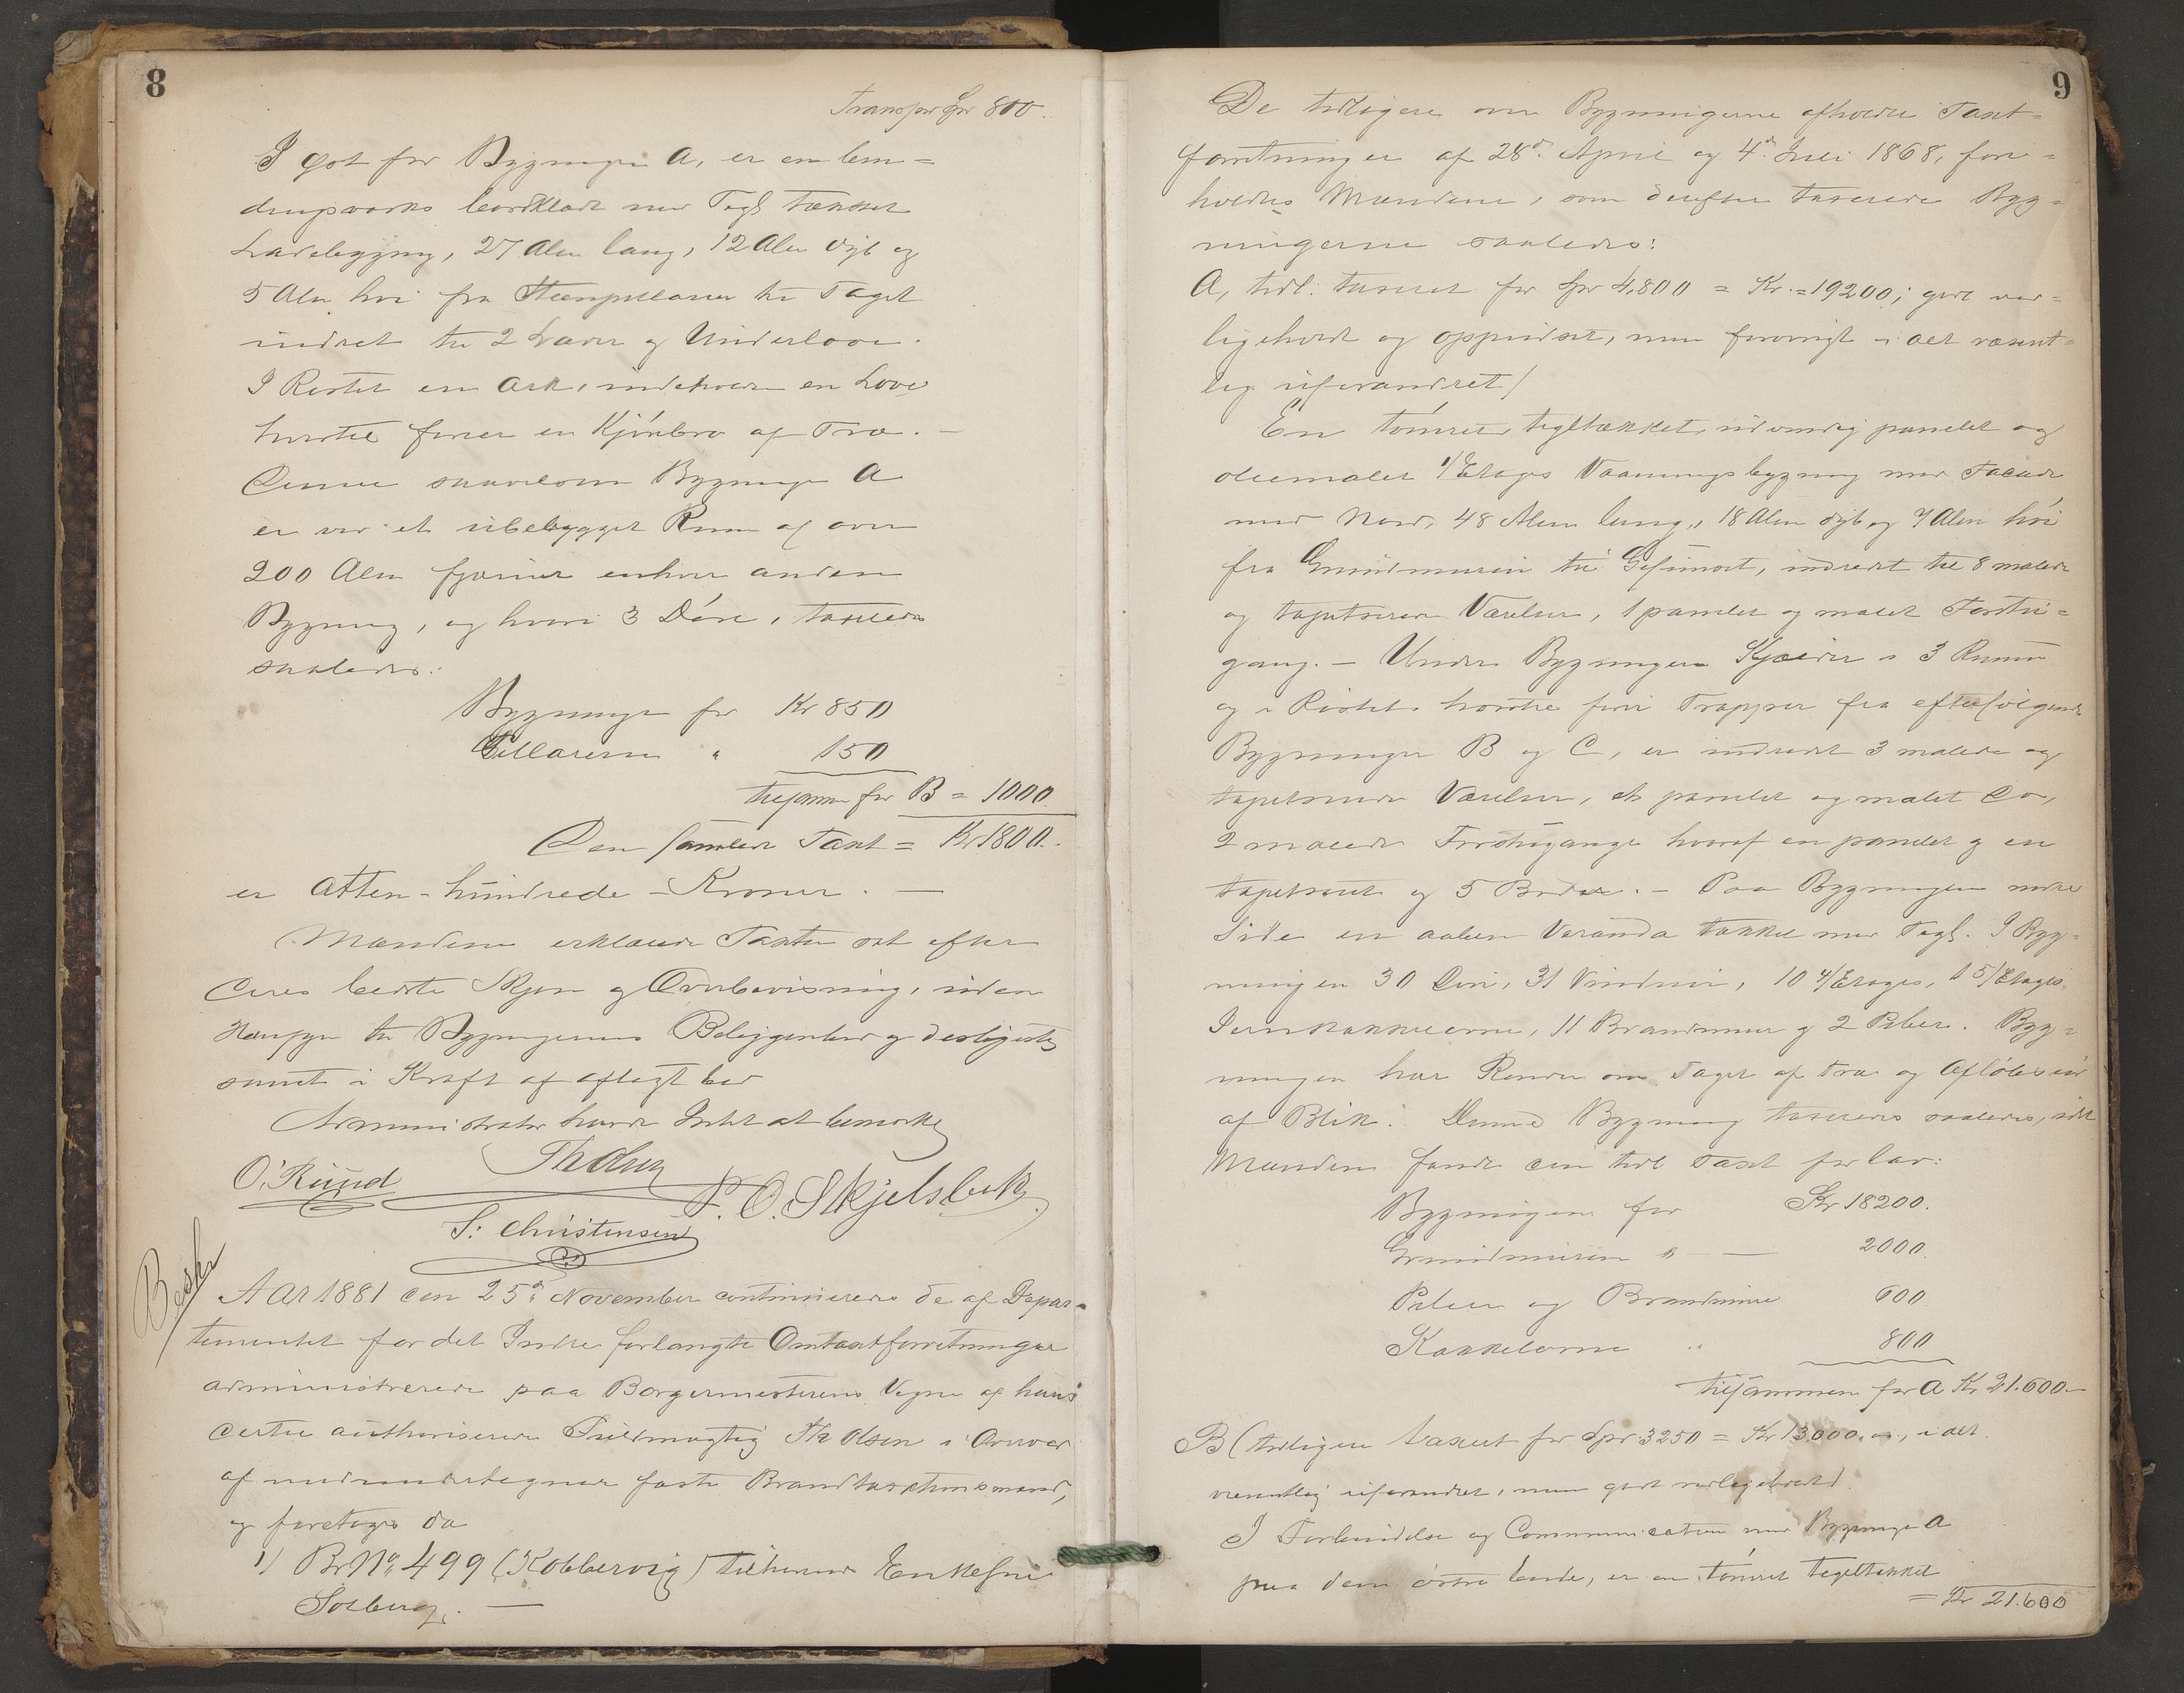 8
Transpr Spr 800.
I Øst for Bygningen A, er en bin=
dingsværks bordklædt med Tegl tækket
Ladebygning, 27 Alen lang, 12 Alen dyb og
5 Alen høi fra Steenpillarer til Taget
indret til 2 Lader og Underlove.
I Røstet en Ark, indeholder en Love
hvortil fører en Kjørebro af Træ. —
Denne saavelsom Bygningen A
er ved et ubebygget Rum af over
200 Alen fjernet enhver anden
Bygning, og hvori 3 Døre, taxeredes
saaledes:
Bygningen for Kr 850
Pillarerne " 150
tilsammen for B = 1000
Den samlede Taxt = Kr 1800.
er Atten-hundrede-Kroner. —
Mændene erklærede Taxten sat efter
deres bedste Skjøn og Overbevisning, uden
Hensyn til Bygningernes Beliggenhed og desligeste
samt i Kraft af aflagt Ed
Administrator havde Intet at bemærke
O. Ruud Th Olsen P. O. Skjelsbek
S. Christensen
Besk
Aar 1881 den 25de November continueredes de af Depar=
tementet for det Indre forlangte Omtaxtforretninger
administrerede paa Borgermesterens Vegne af hans
dertil authoriserede Fuldmægtig Th Olsen i Overvær
af medundertegnede faste Brandtaxtionsmænd,
og foretoges da
1) Br No 499 (Kobbervig) tilhørende Enkefru
Solberg. —
9
De tidligere over Bygningerne afholdte Taxt=
forretninger af 28de April og 4de Juli 1868, fore=
holdtes Mændene, som derefter taxerede Byg=
ningerne saaledes:
A, tidl. taxeret for Spr 4,800 = Kr. = 19200; godt ved=
ligeholdt og oppudset, men forøvrigt i det væsent=
lig uforandret)
En tømret, tegltækket, udvendig panelet og
oliemalet 1/Etages Vaaningsbygning med Facade
mod Nord, 48 Alen lang, 18 Alen dyb og 7 Alen høi
fra Grundmuren til Gesimset, indredt til 8 malede
og tapetserede Værelser, 1 panelet og malet Forstu=
gang. — Under Bygningen Kjælder i 3 Rumm
og i Røstet, hvortil fører Trapper fra efterfølgende
Bygninger B og C, er indredt 3 malede og
tapetserede Værelser, et panelet og malet Do,
2 malede Forstugange hvoraf en panelet og en
tapetseret og 5 Boder. — Paa Bygningens nordre
Side en aaben Veranda tækket med Tegl. I Byg=
ningen 30 Døre, 31 Vinduer, 10 4/Etages, 1 5/Etages
Jernkakkelovne, 11 Brandmure og 2 Piber. Byg=
ningen har Render om Taget af Træ og Afløbsrør
af Blik. Denne Bygning taxeredes saaledes, idet
Mændene fandt den tidl Taxt for lav:
Bygningen for Kr 18200.
Grundmuren " — 2000.
Piber og Brandmure 600
Kakkelovne " 800
tilsammen for A Kr 21.600 —
B (tidligere taxeret for Spr 3250 = Kr 13000.00, i det
væsentlig uforandret, men godt vedligeholdt)
I Forbindelse og Communication med Bygningen A
paa dens østre Ende, er en tømret tegltækket
= Kr 21.600